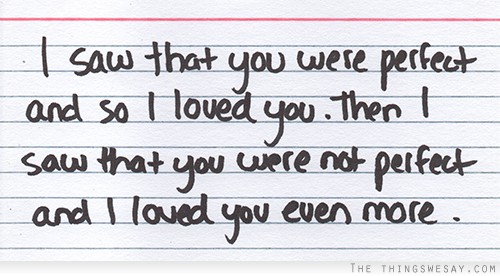 I saw that you were perfect
and so I loved you. Then I
saw that you were not perfect
and I loved you even more.
THE THINGSWESAY.COM